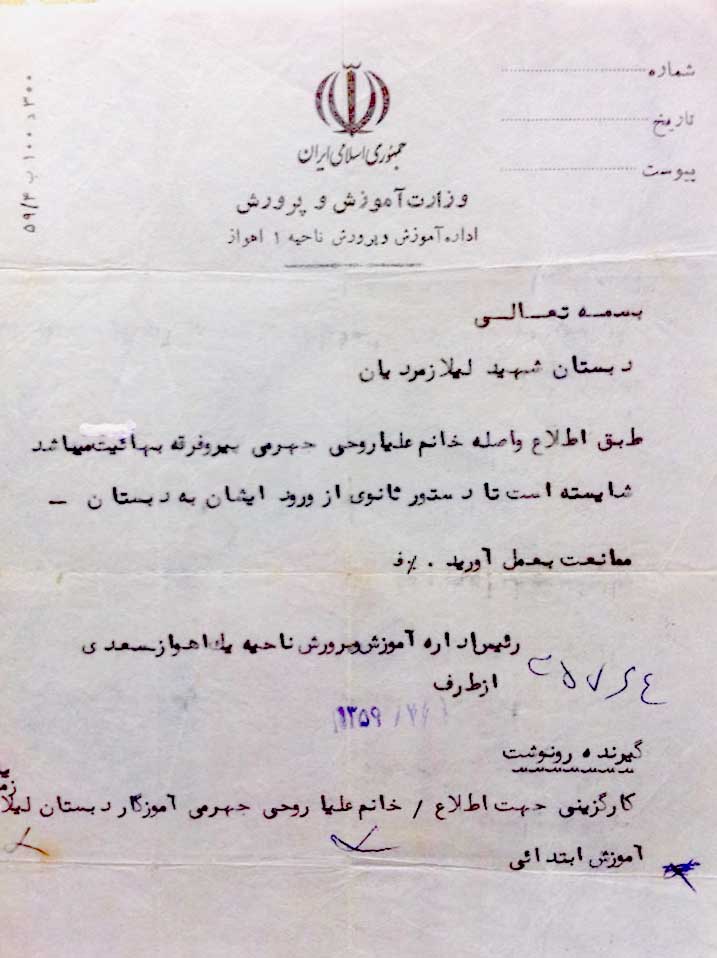 شماره
تاریخ
پیوست
۳۰۰ د ۱۰۰ ب ۵۹/۴
جمهوری اسلامی ایران
وزارت آموزش و پرورش
اداره آموزش و پرورش ناحیه ۱ اهواز
بسمه تعالی
دبستان شهید لیلا زمردیان
طبق اطلاع واصله خانم علیا روحی جهرمی پیرو فرقه بهائیت میباشد
شایسته است تا دستور ثانوی از ورود ایشان به دبستان –
ممانعت بعمل آورید . /ف
رئیس اداره آموزش و پرورش ناحیه یک اهواز سعدی
از طرف
۱۳۵۹
گیرنده رونوشت
کارگزینی جهت اطلاع / خانم علیا روحی جهرمی آموزگار دبستان لیلا
آموزش ابتدائی